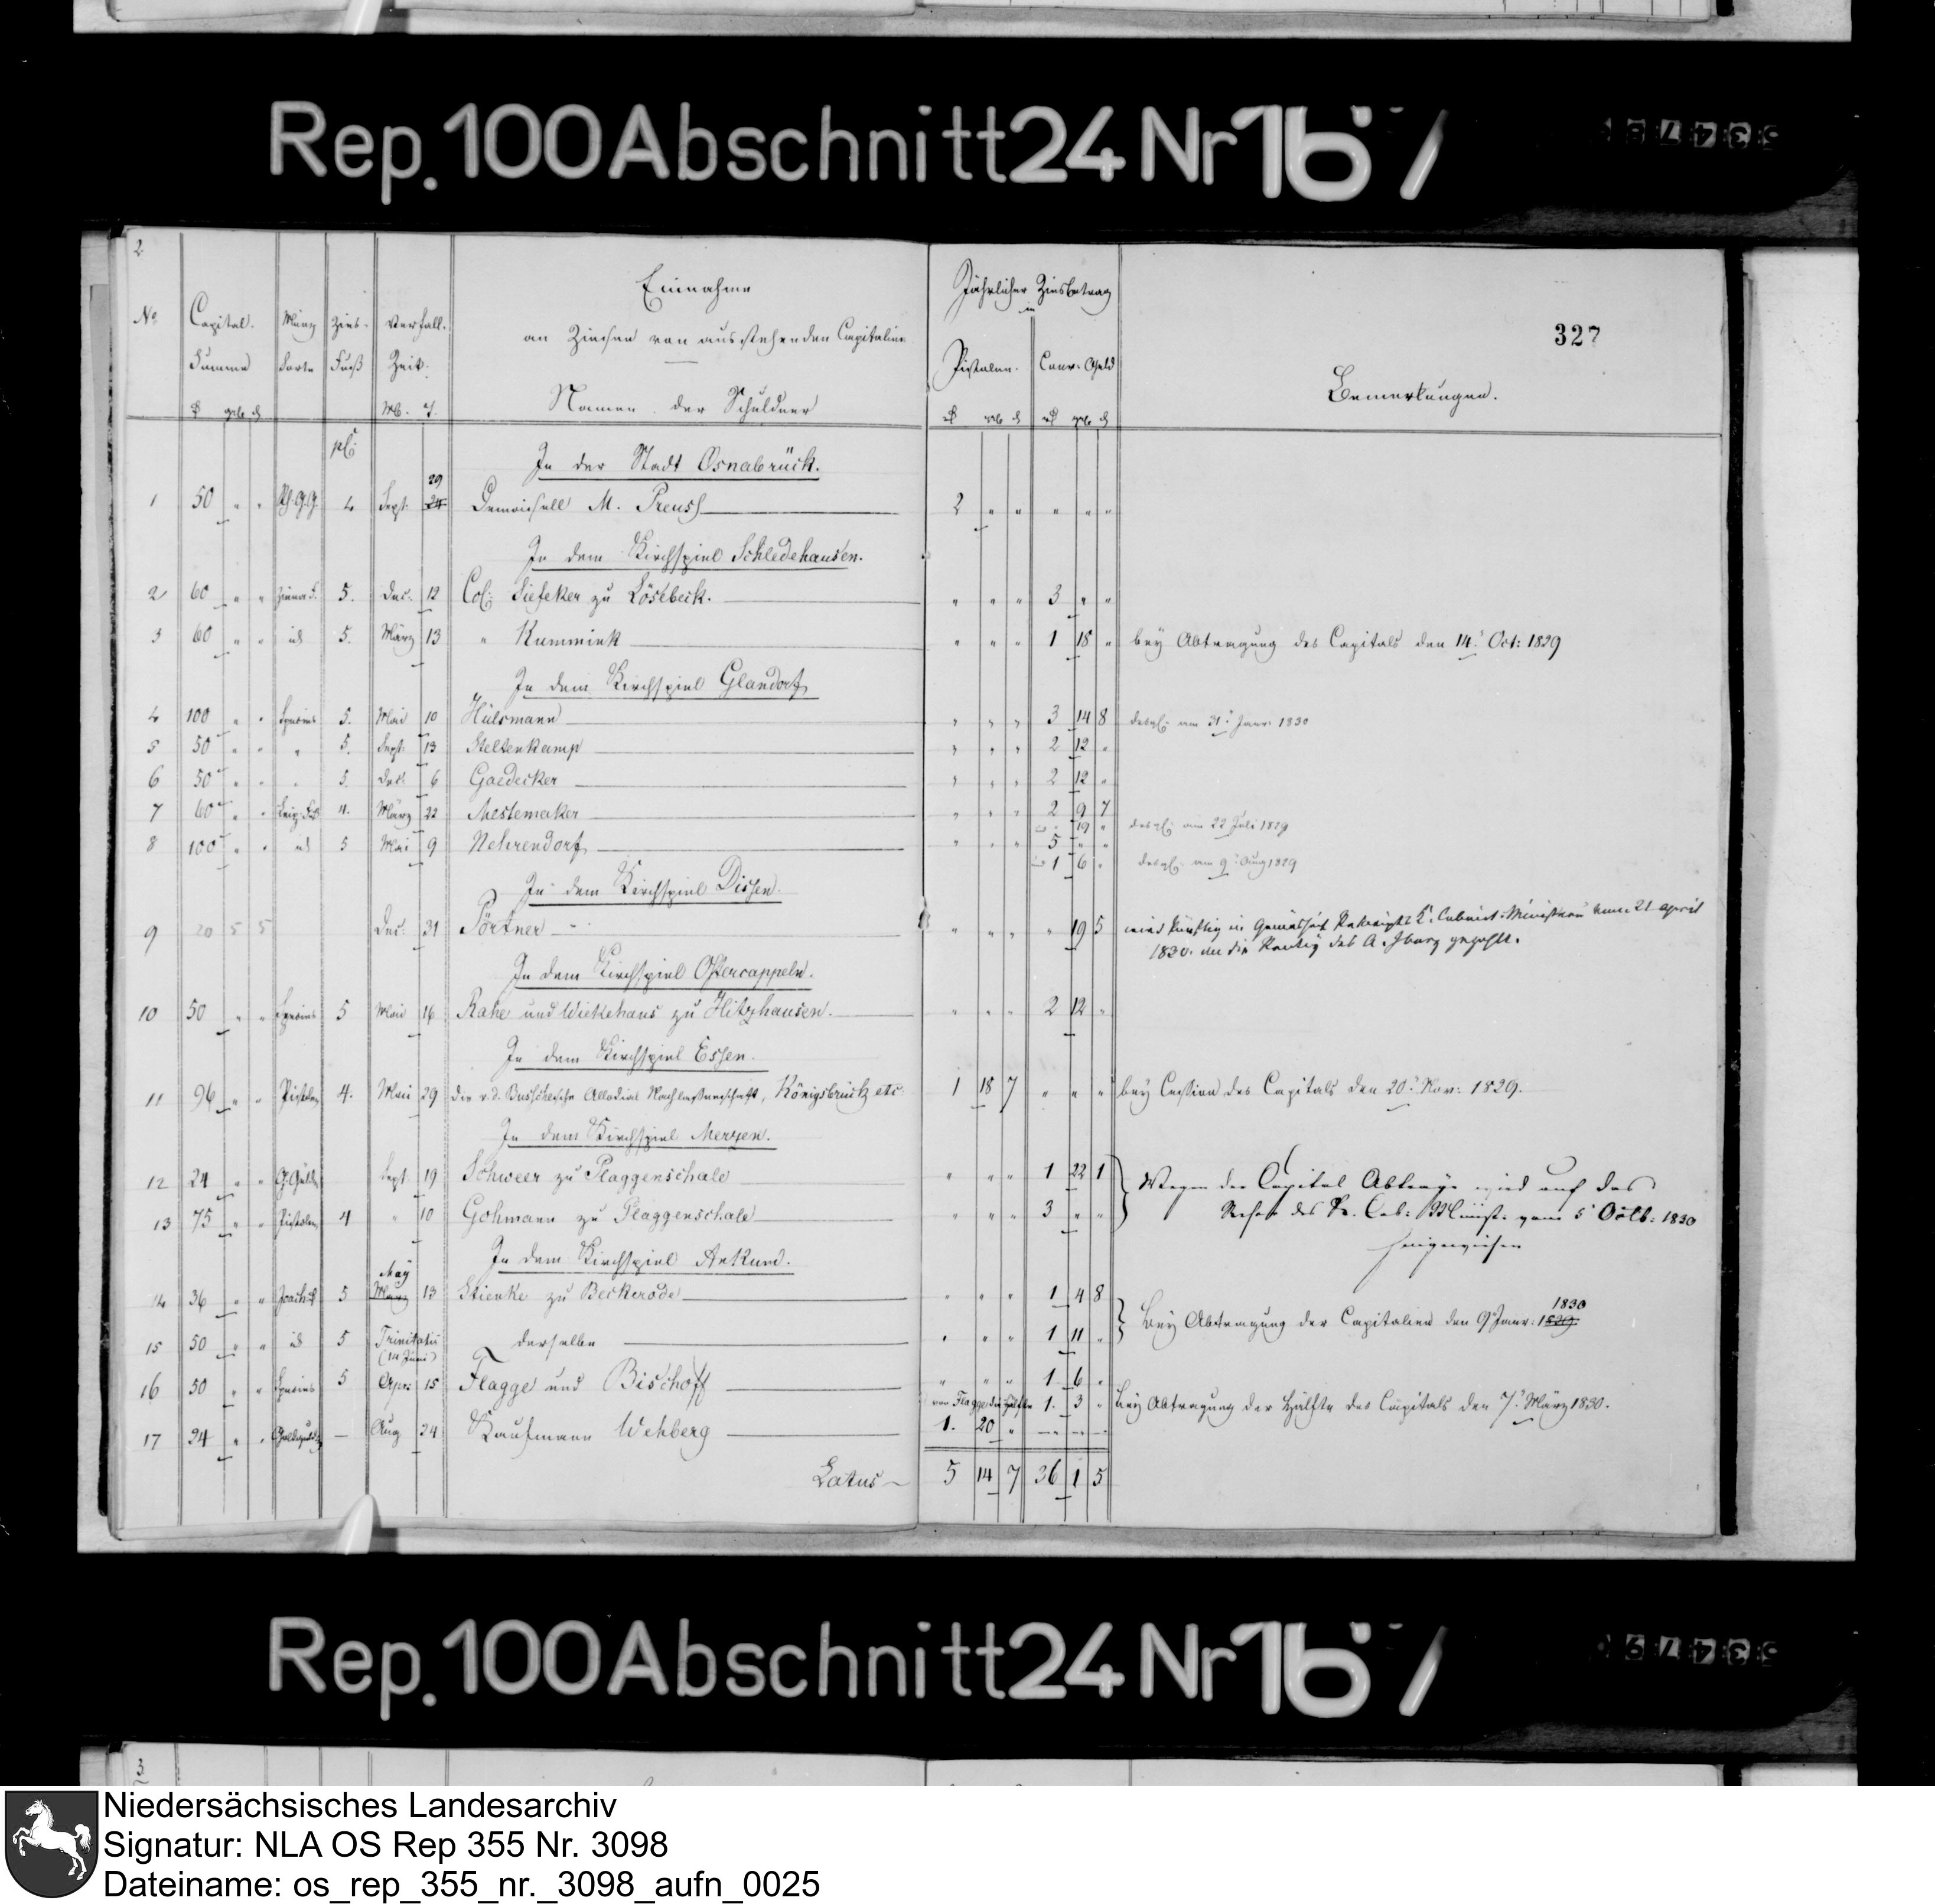 Rep. 100 Abschnitt 24 Nr 167
2
327
Einnahme
an Zinsen von ausstehenden Capitalien
Namen der Schuldner
No Capital Summe Münz Sorte Zins-Fuß Verfall-Zeit
M. T.
Jährlicher Zinsbetrag
in
Pistolen. Conv. Geld
Bemerkungen.
In der Stadt Osnabrück.
29
1 50 " " 4 Sept. 24 Demoisell M. Preuss 2 " " " " "
In dem Kirchspiel Schledehausen.
2 60 " " 5. Dec. 12 Col: Siefeker zu Lösebeck. " " " 3 " "
3 60 " " id 5. März 13 " Kummink " " " 1 18 " bey Abtragung des Capitals den 14t Oct: 1829
In dem Kirchspiel Glandorf
4 100 " " Species 5. Mai 10 Hülsmann " " " 3 14 8 desgl. am 31t Janr. 1830
5 50 " " " 5. Sept. 13 Steltenkamp " " " 2 12 "
6 50 " " " 5. Dec. 6 Gaedecker " " " 2 12 "
7 60 " " 4. März 22 Mestemaker " " " 2 9 7
19 " desgl. am 22 Juli 1829
8 100 " " id 5 Mai 9 Nehrendorf " " " 5 " "
1 6 " desgl. am 9t Aug 1829
In dem Kirchspiel Dissen.
9 20 5 5 Dec. 31 Pörtner " " " " 19 5 wird künftig in Gemäsheit Rescripts K. Cabinets-Ministerii vom 21 april
1830. an die Rentey des A. Iburg gezahlt.
In dem Kirchspiel Ostercappeln.
10 50 " " Species 5 Mai 16 Rahe und Wiekehaus zu Hitzhausen. " " " 2 12 "
In dem Kirchspiel Essen.
11 96 " " Pistolen 4. Mai 29 die v. d. Busschesche Allodial Nachlassenschaft, Königsbrück etc. 1 18 7 " " " bey Cession des Capitals den 20t Nov: 1829.
In dem Kirchspiel Merzen.
12 24 " " Sept. 19 Schweer zu Plaggenschale " " " 1 22 1
13 75 " " Pistolen 4 " 10 Gohmann zu Plaggenschale " " " 3 " "
Wegen der Capital Abträge wird auf das
Rescr. des K. Cab: Minist. vom 5t Octb: 1830
hingewiesen
In dem Kirchspiel Ankum.
May
14 36 " " 5 März 13 Stienke zu Beckerode " " " 1 4 8
15 50 " " id 5 Trinitatis derselbe " " " 1 11 "
(14 Juni)
1830
Bey Abtragung der Capitalien den 9t Janr: 1829.
16 50 " " Species 5 Apr: 15 Flagge und Bischoff " " " 1 6 "
von Flagge die Hälfte 1. 3 " bey Abtragung der Hälfte des Capitals den 7t März 1830.
17 24 " " Goldgulden — Aug 24 Kaufmann Wehberg 1. 20 " — — —
Latus 5 14 7 36 1 5
Rep. 100 Abschnitt 24 Nr 167
3.
Niedersächsisches Landesarchiv
Signatur: NLA OS Rep 355 Nr. 3098
Dateiname: os_rep_355_nr._3098_aufn_0025